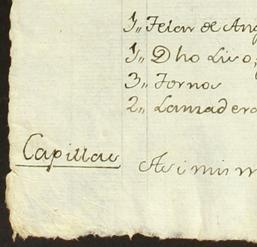 1,, Telar de Ang
1,, Dho Liso,
3,, Tornos
2,, Lanzadera
Capillas Asimism